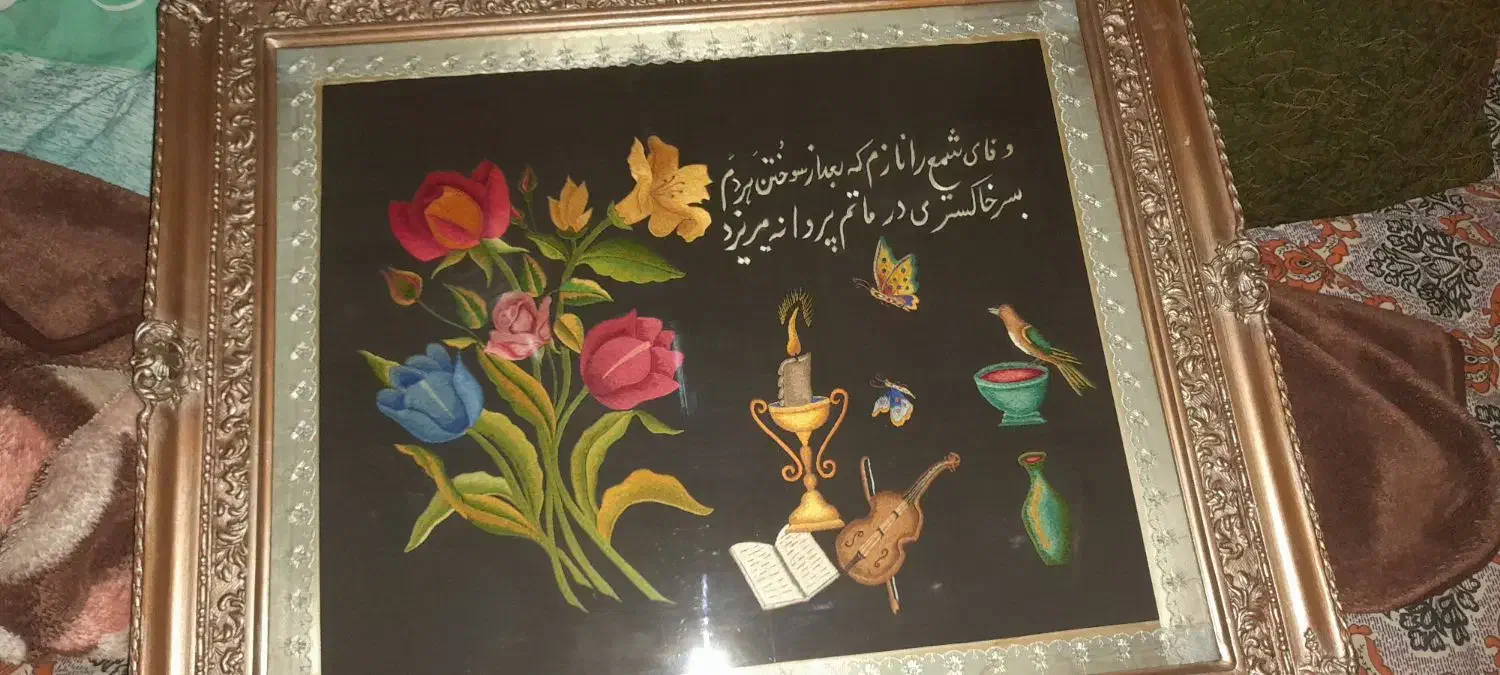 وفای شمع را نازم که بعد از سوختن هر دَم
بسر خاکستری در ماتم پروانه میریزد